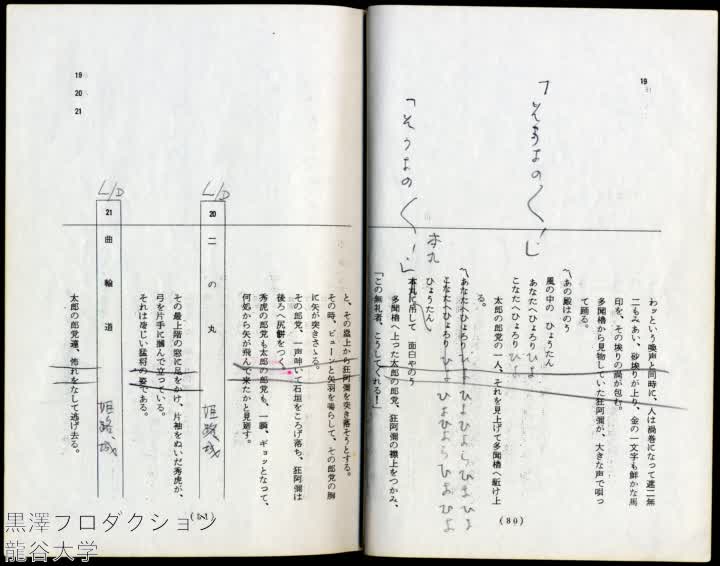 19
「そうよの〱」
「そうよの〱」
わッという喚声と同時に、人は渦巻になって遮二無
二もみあい、砂埃りが上り、金の一文字も鮮かな馬
印を、その埃りの渦が包む。
多聞櫓から見物していた狂阿彌が、大きな声で唄っ
て踊る。
〽あの殿はのう
風の中の　ひょうたん
あなたへひょろり ひよ
こなたへひょろり ひよ
太郎の郎党の一人、それを見上げて多聞櫓へ駈け上
る。
〽あなたへひょろり
こなたへひょろり
ひょうたん
本丸
本丸に吊して　面白やのう
多聞櫓へ上った太郎の郎党、狂阿彌の襟上をつかみ、
「この無礼者、こうしてくれる！」
(80)
19
20
21
と、その櫓上から狂阿彌を突き落そうとする。
その時、ピューンと矢羽を鳴らして、その郎党の胸
に矢が突きさゝる。
その郎党、一声呻いて石垣をころげ落ち、狂阿彌は
後ろへ尻餅をつく。
秀虎の郎党も太郎の郎党も、一瞬、ギョッとなって、
何処から矢が飛んで来たかと見廻す。
L/D
20　二の丸
姫路城
その最上階の窓に足をかけ、片袖をぬいだ秀虎が、
弓を片手に摑んで立っている。
それは凄じい猛将の姿である。
L/D
21　曲輪道
姫路城
太郎の郎党達、怖れをなして逃げ去る。
(81)
黒澤プロダクション
龍谷大学